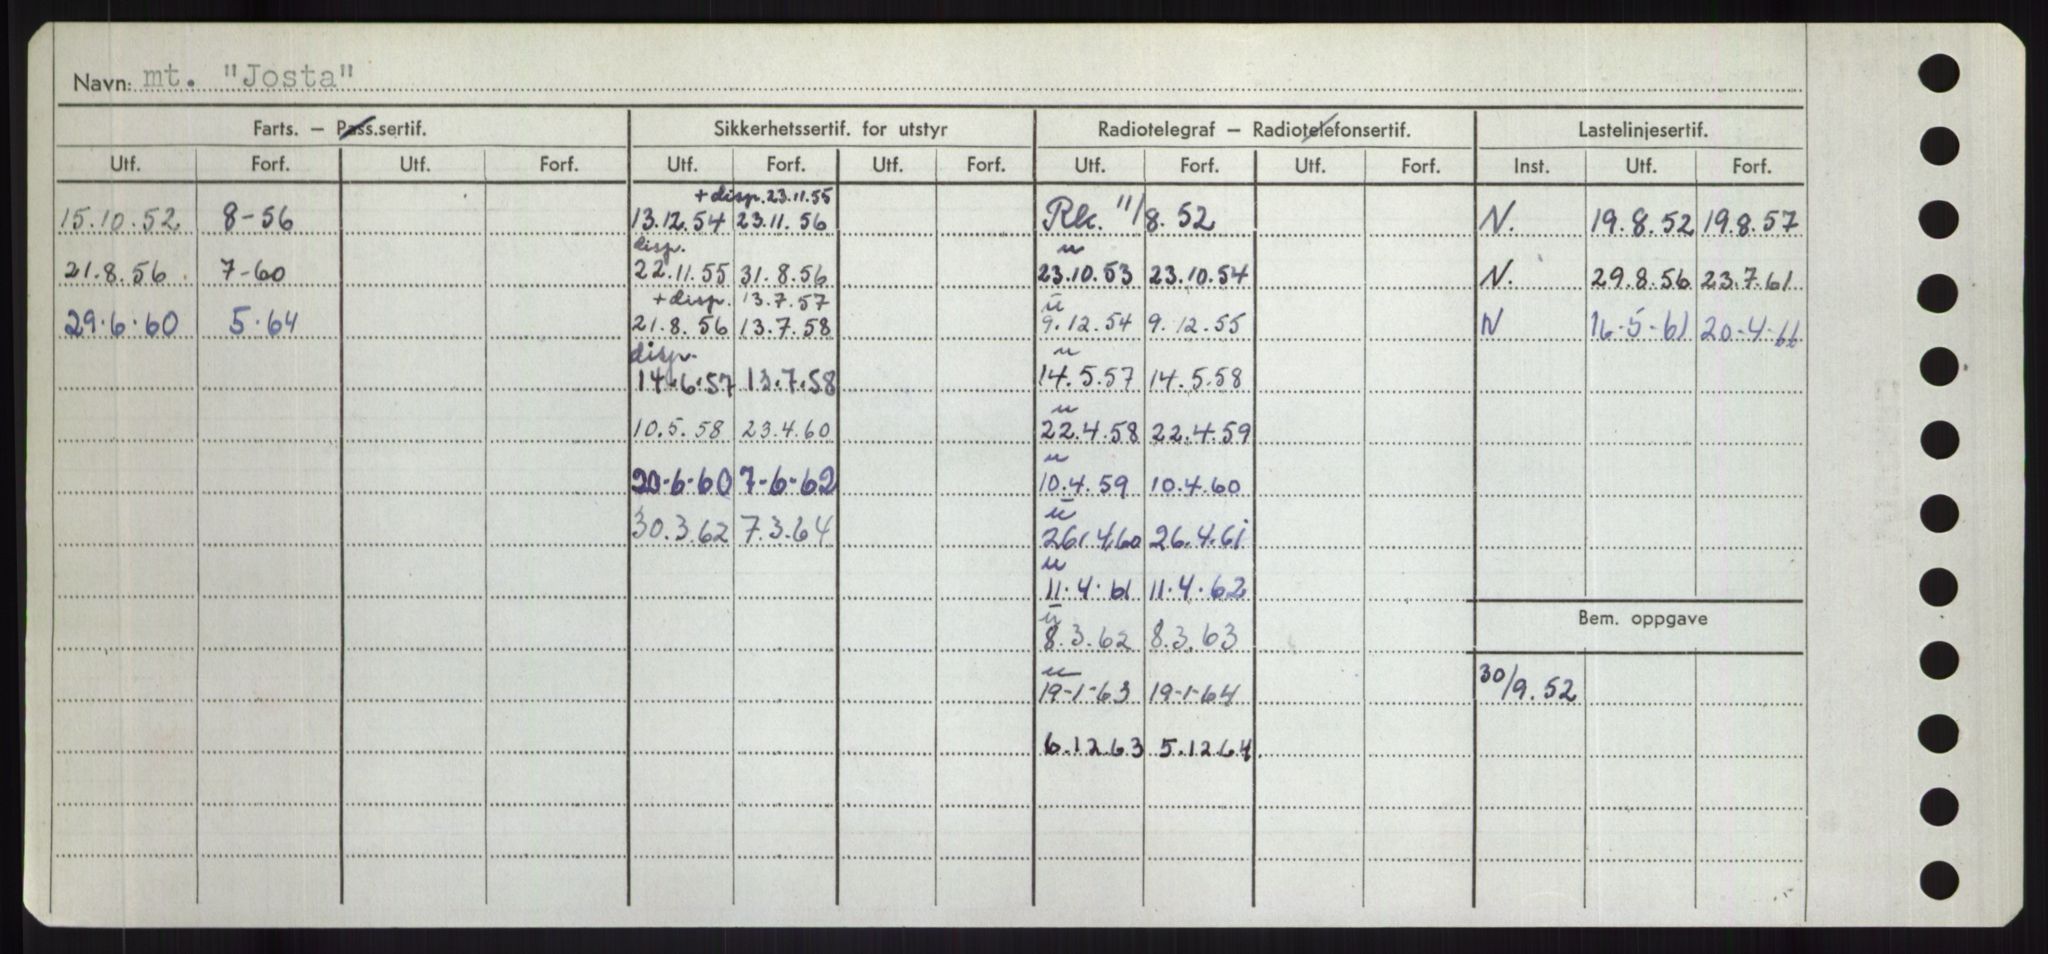 Navn: mt. "Josta"
Farts. – Pass.sertif. Sikkerhetssertif. for utstyr Radiotelegraf – Radiotelefonsertif. Lastelinjesertif.
Utf. Forf. Utf. Forf. Utf. Forf. Utf. Forf. Utf. Forf. Utf. Forf. Inst. Utf. Forf.
+ disp. 23.11.55
15.10.52 8-56 13.12.54 23.11.56 Rk. 11/8.52 N. 19.8.52 19.8.57
disp. u
21.8.56 7-60 22.11.55 31.8.56 23.10.53 23.10.54 N. 29.8.56 23.7.61
+ disp. 13.7.57 u
29.6.60 5.64 21.8.56 13.7.58 9.12.54 9.12.55 N 16-5-61 20-4-66
disp. u
14.6.57 13.7.58 14.5.57 14.5.58
u
10.5.58 23.4.60 22.4.58 22.4.59
u
20-6-60 7-6-62 10.4.59 10.4.60
u
30.3.62 7.3.64 26.4.60 26.4.61
u
11.4.61 11.4.62
u
8.3.62 8.3.63
Bem. oppgave
u
19-1-63 19-1-64 30/9.52
6.12.63 5.12.64